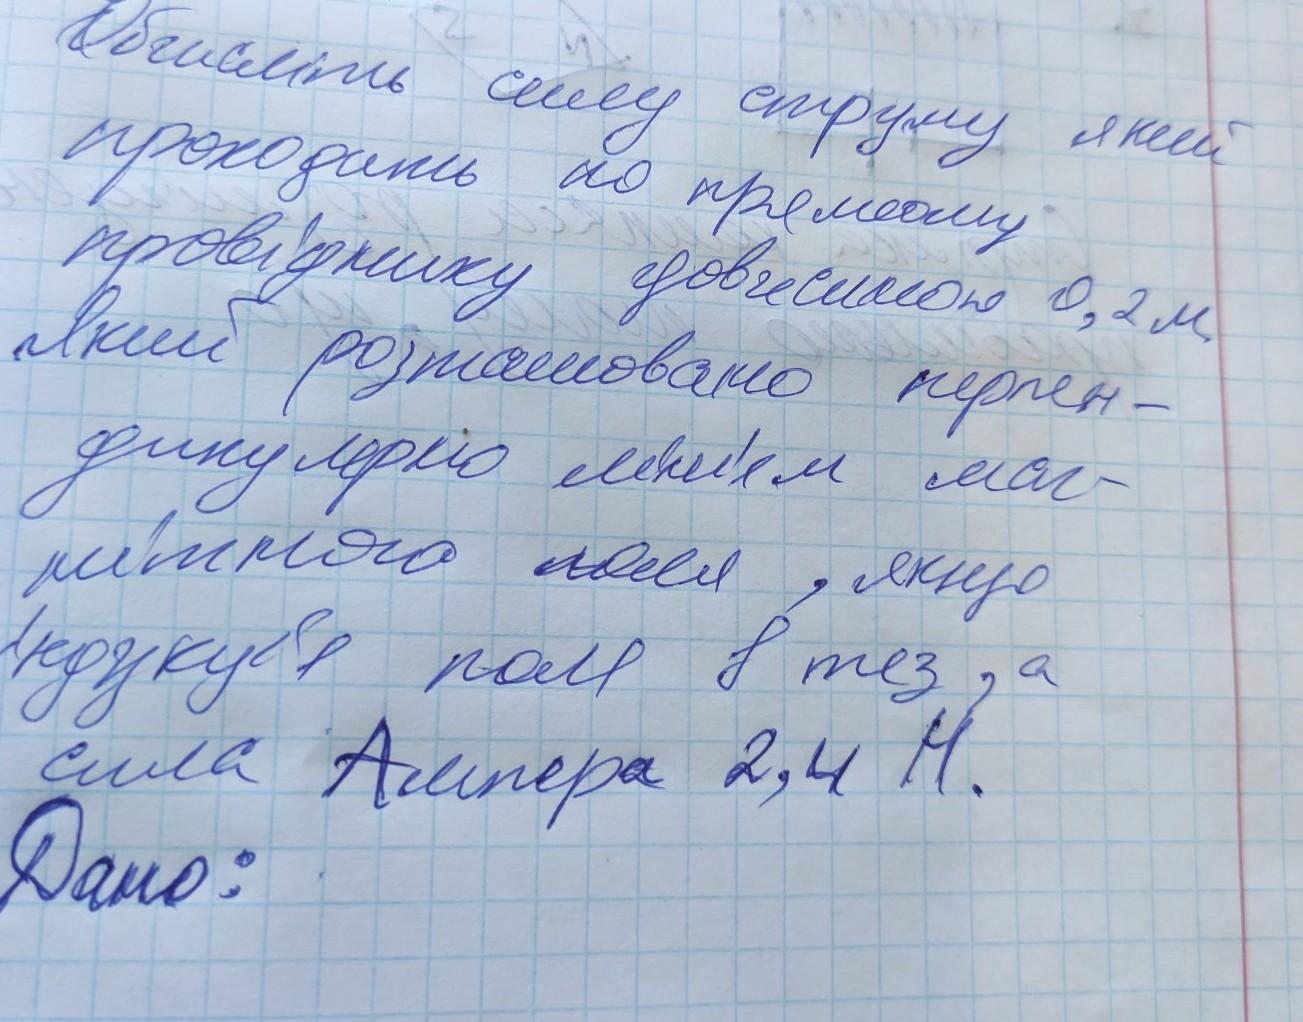 Обчисліть силу струму який
проходить по прямому
провіднику довжиною 0,2 м,
який розташовано перпен-
дикулярно лініям маг-
нітного поля, якщо
індукція поля 8 тез, а
сила Ампера 2,4 Н.
Дано: